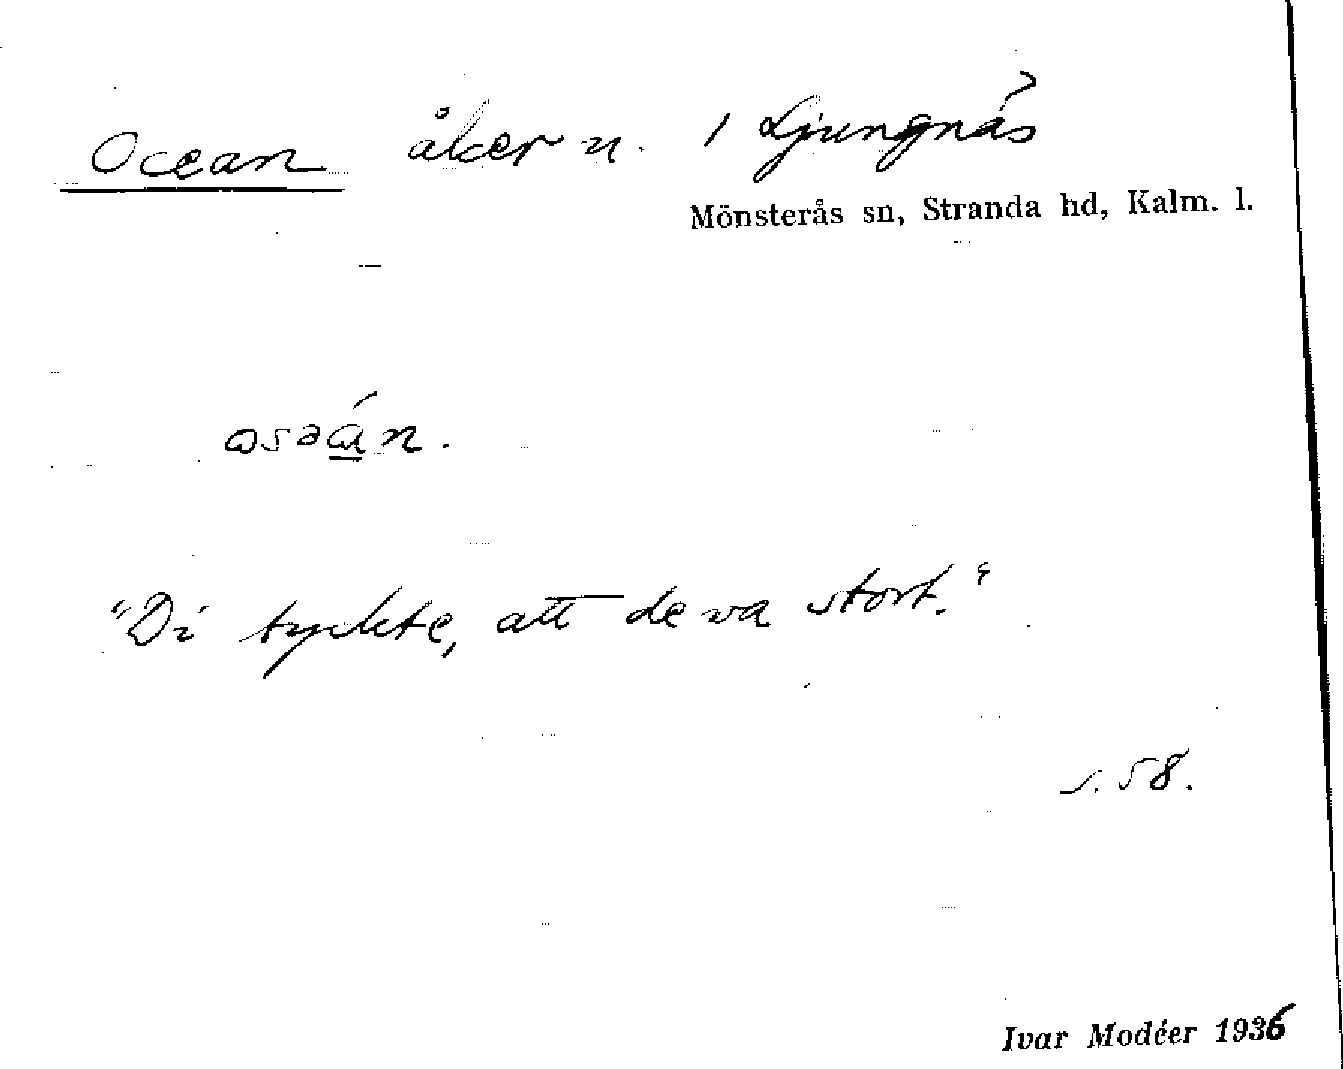 Ocean åker n. 1 Ljungnäs
Mönsterås sn, Stranda hd, Kalm. l.
osaán.
"Di tyckte, att de va stort."
s. 58.
Ivar Modéer 1936